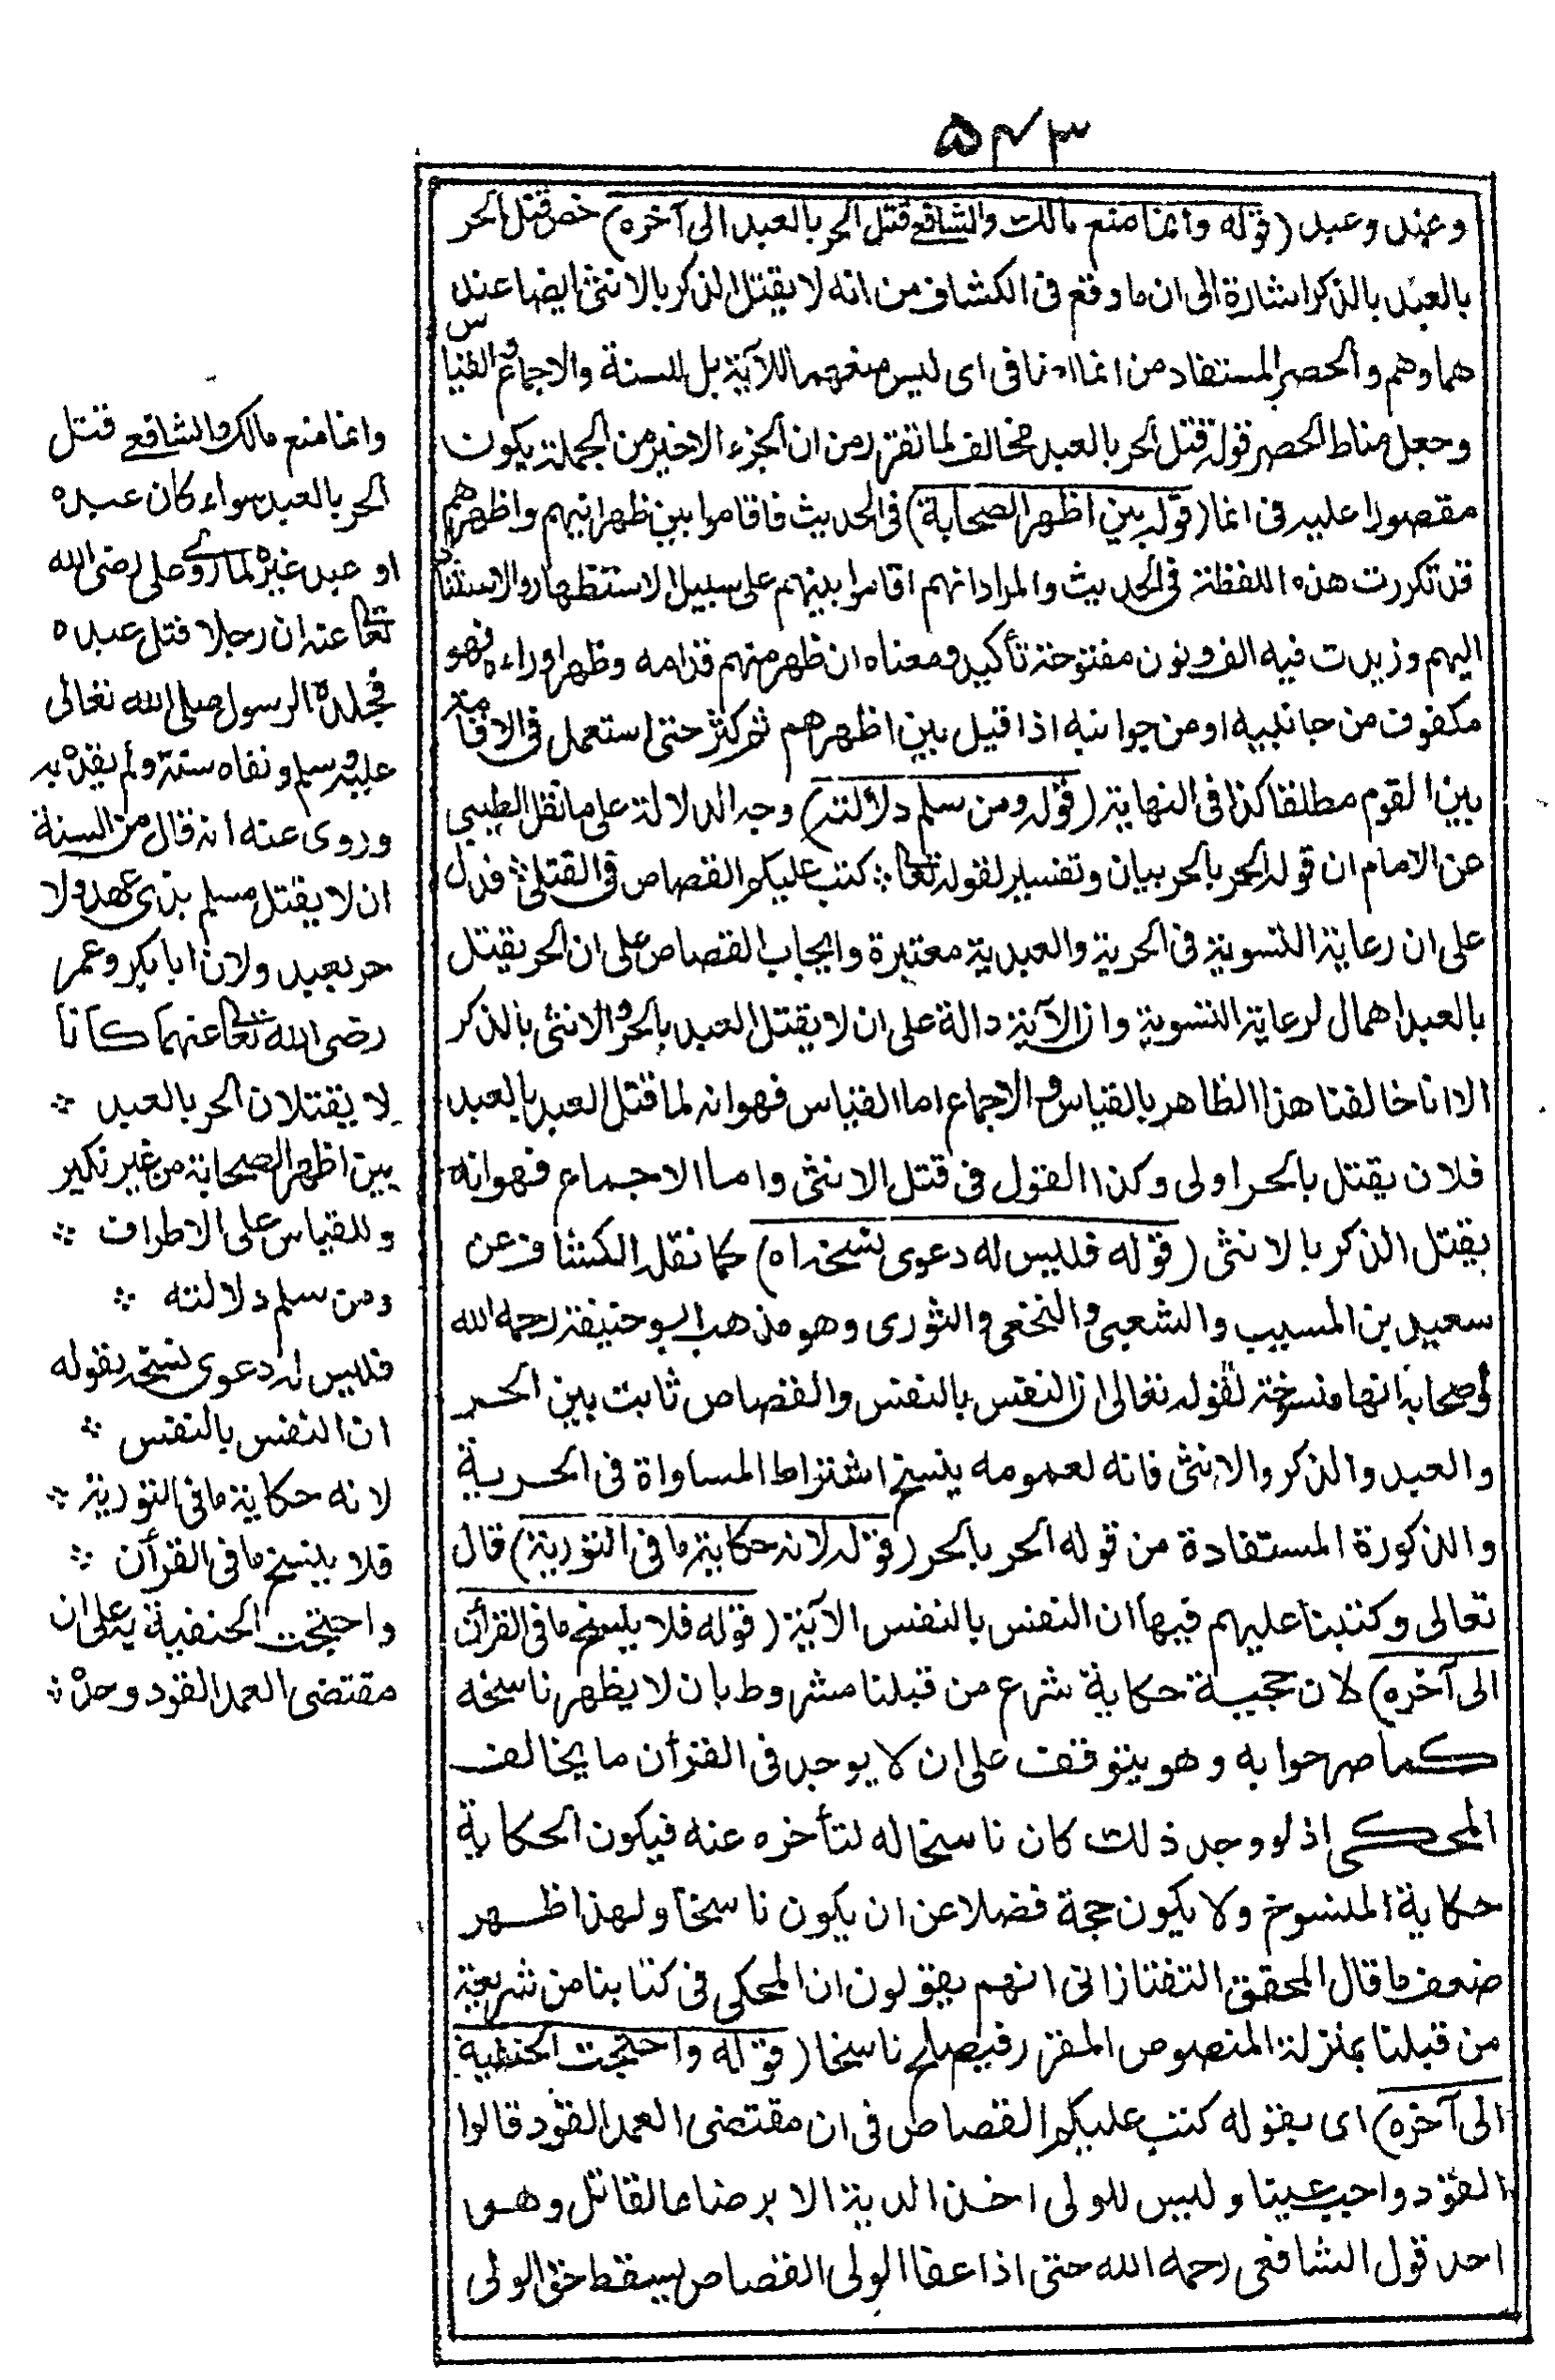 ٥٤٣
وعبد وعبد (قوله وانما منع مالك والشافعى قتل الحر بالعبد الى آخره) خص قتل الحر
بالعبد بالذكر اشارة الى ان ما وقع فى الكشاف من انه لا يقتل الذكر بالانثى ايضا عند
هما وهم والحصر المستفاد من انما اضافى اى ليس منعهما للآية بل للسنة والاجماع والقياس
وجعل مناط الحصر قوله قتل الحر بالعبد مخالف لما تقرر من ان الجزء الاخير من الجملة يكون
مقصورا عليه فى انما (قوله بين اظهر الصحابة) فى الحديث فاقاموا بين ظهرانيهم واظهرهم
قد تكررت هذه اللفظة فى الحديث والمراد انهم اقاموا بينهم على سبيل الاستظهار والاستناد
اليهم وزيدت فيه الف ونون مفتوحة تأكيدا ومعناه ان ظهرا منهم قدامه وظهرا وراءه فهو
مكفوف من جانبيه او من جوانبه اذا قيل بين اظهرهم ثم كثر حتى استعمل فى الاقامة
بين القوم مطلقا كذا فى النهاية (قوله ومن سلم دلالته) وجه الدلالة على ما نقل الطيبى
عن الامام ان قوله الحر بالحر بيان وتفسير لقوله تعالى كتب عليكم القصاص فى القتلى فدل
على ان رعاية التسوية فى الحرية والعبدية معتبرة وايجاب القصاص على ان الحر يقتل
بالعبد اهمال لرعاية التسوية وان الآية دالة على ان لا يقتل العبد بالحر والانثى بالذكر
الا انا خالفنا هذا الظاهر بالقياس والاجماع اما القياس فهو انه لما قتل العبد بالعبد
فلان يقتل بالحر اولى وكذا القول فى قتل الانثى واما الاجماع فهو انه
يقتل الذكر بالانثى (قوله فليس له دعوى نسخه اه) كما نقله الكشاف عن
سعيد بن المسيب والشعبى والنخعى والثورى وهو مذهب ابو حنيفة رحمه الله
واصحابه انها منسوخة لقوله تعالى ان النفس بالنفس والقصاص ثابت بين الحر
والعبد والذكر والانثى فانه لعمومه ينسخ اشتراط المساواة فى الحرية
والذكورة المستفادة من قوله الحر بالحر (قوله لانه حكاية ما فى التورية) قال
تعالى وكتبنا عليهم فيها ان النفس بالنفس الآية (قوله فلا ينسخ ما فى القرآن
الى آخره) لان حجية حكاية شرع من قبلنا مشروط بان لا يظهر ناسخه
كما صرحوا به وهو يتوقف على ان لا يوجد فى القرآن ما يخالف
المحكى اذ لو وجد ذلك كان ناسخا له لتأخره عنه فيكون الحكاية
حكاية المنسوخ ولا يكون حجة فضلا عن ان يكون ناسخا ولهذا ظهر
ضعف ما قال المحقق التفتازانى انهم يقولون ان المحكى فى كتابنا من شريعة
من قبلنا بمنزلة المنصوص المقرر فيصلح ناسخا (قوله واحتجت الحنفية
الى آخره) اى بقوله كتب عليكم القصاص فى ان مقتضى العمد القود قالوا
القود واجب عينا وليس للولى اخذ الدية الا برضاء القاتل وهو
احد قول الشافعى رحمه الله حتى اذا عفا الولى القصاص يسقط حق الولى
وانما منع مالك والشافعى قتل
الحر بالعبد سواء كان عبده
او عبد غيره لما روى على رضى الله
تعالى عنه ان رجلا قتل عبده
فجلده الرسول صلى الله تعالى
عليه وسلم ونفاه سنة ولم يقده به
وروى عنه انه قال من السنة
ان لا يقتل مسلم بذى عهد ولا
حر بعبد ولان ابا بكر وعمر
رضى الله تعالى عنهما كانا
لا يقتلان الحر بالعبد
بين اظهر الصحابة من غير نكير
وللقياس على الاطراف
ومن سلم دلالته
فليس له دعوى نسخه بقوله
ان النفس بالنفس
لانه حكاية ما فى التورية
فلا ينسخ ما فى القرآن
واحتجت الحنفية به على ان
مقتضى العمد القود وحده